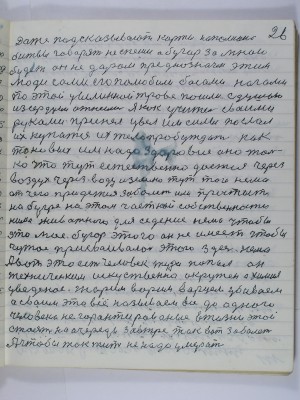 26
Даже подсказывают карты написано
битвы говорят не спеши а бугор за мною
будет он не даром предназначен этим
людям сами его полюбили босыми ногами
по этой увиденной траве пошли с душою
и сердцем отнеслись Я их чувством своими
руками принял увел им силы послал
их купаться их тело пробуждать как
таковым им надо здоровье оно толь-
ко что тут естественно дается через
воздух через воду и землю тут того нема
от чего придется заболеть им простыть
на бугре на этом частной собственности
никак животного для съедение нема чтобы
это мое бугор этого он не имеет чтобы
чужое присваивалось этого здесь нема
А вот это есть человек туда попал он
технически искусственно окружен а химия
уведена жарим варим варим убиваем
а своим это всё называем все до одного
человека не гарантированые в жизни этой
стоят на очереди завтра так вот заболел
А чтобы так жить не надо умирать